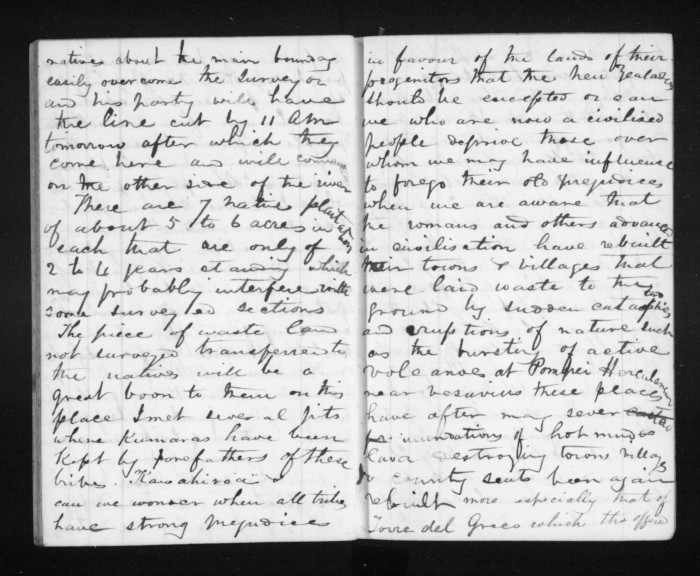 natives about the main boundary
easily overcome the surveyor
and his party will have
the line cut by 11 AM
tomorrow after which they
come here and will commence
on the other side of the river
There are 7 native plantations
of about 5 to 6 acres in
each that are only of
2 to 4 years standing which
may probably interfere with
some surveyed sections
The piece of waste land
not surveyed transferred to
the natives will be a
great boon to them on this
place I met several pits
where Kumaras have been
Kept by forefathers of these
tribes.
can we wonder when all tribes
have strong prejudices
in favour of the lands of their
progenitors that the New Zealanders
should be excepted or can
we who are now a civilised
people deprive those over
whom we may have influence
to forego their old prejudices
when we are aware that
the romans and others advanced
in civilisation have rebuilt
their towns & villages that
were laid waste to the
ground by sudden catastrophies
and eruptions of nature such
as the bursting of active
volcanoes at Pompei Herculaneum
near vesuvius these places
have after many sever
inundations of hot mud &
lava destroying towns villages
& country seats been again
rebuilt more especially that of
Torre del Greco which tho